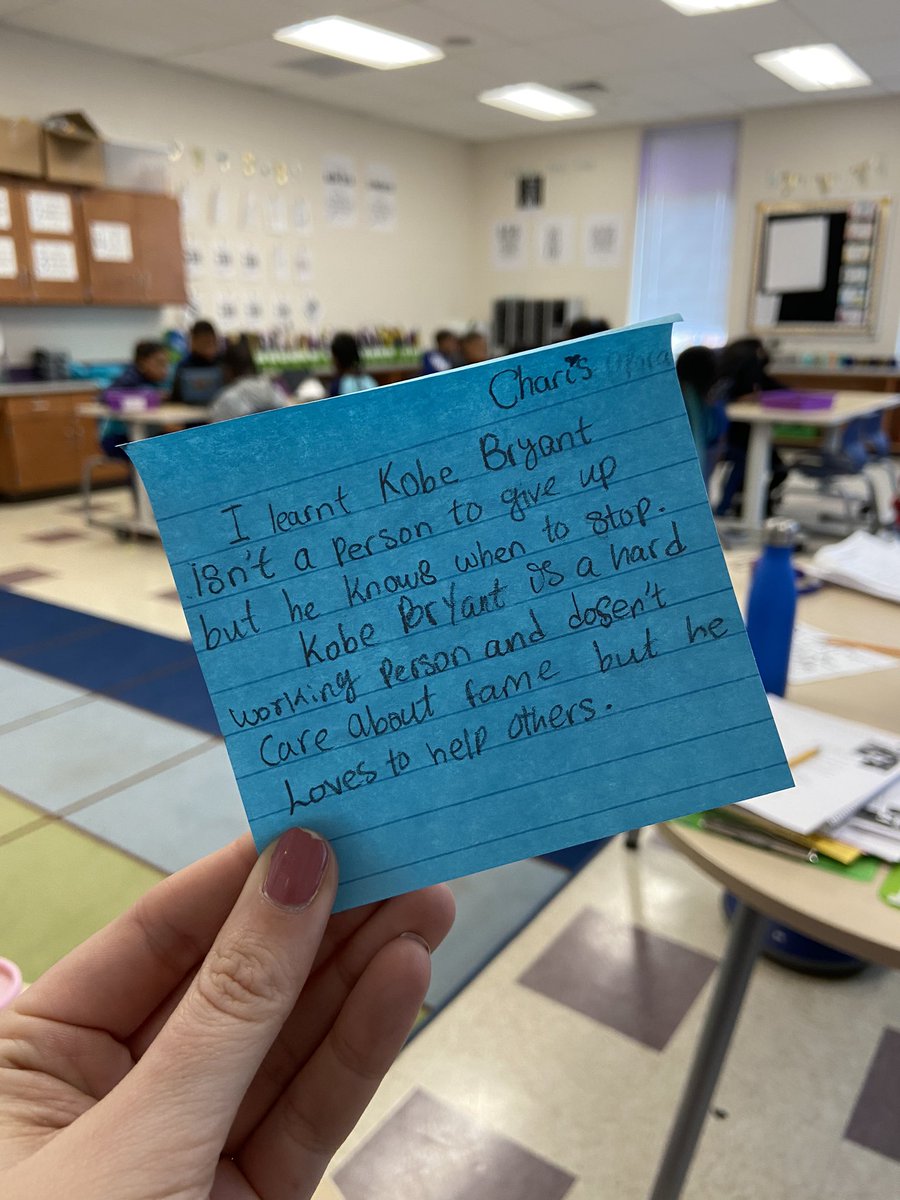 Charis
I learnt Kobe Bryant
isn't a person to give up
but he knows when to stop.
Kobe Bryant is a hard
working Person and dosen't
Care about fame but he
Loves to help others.